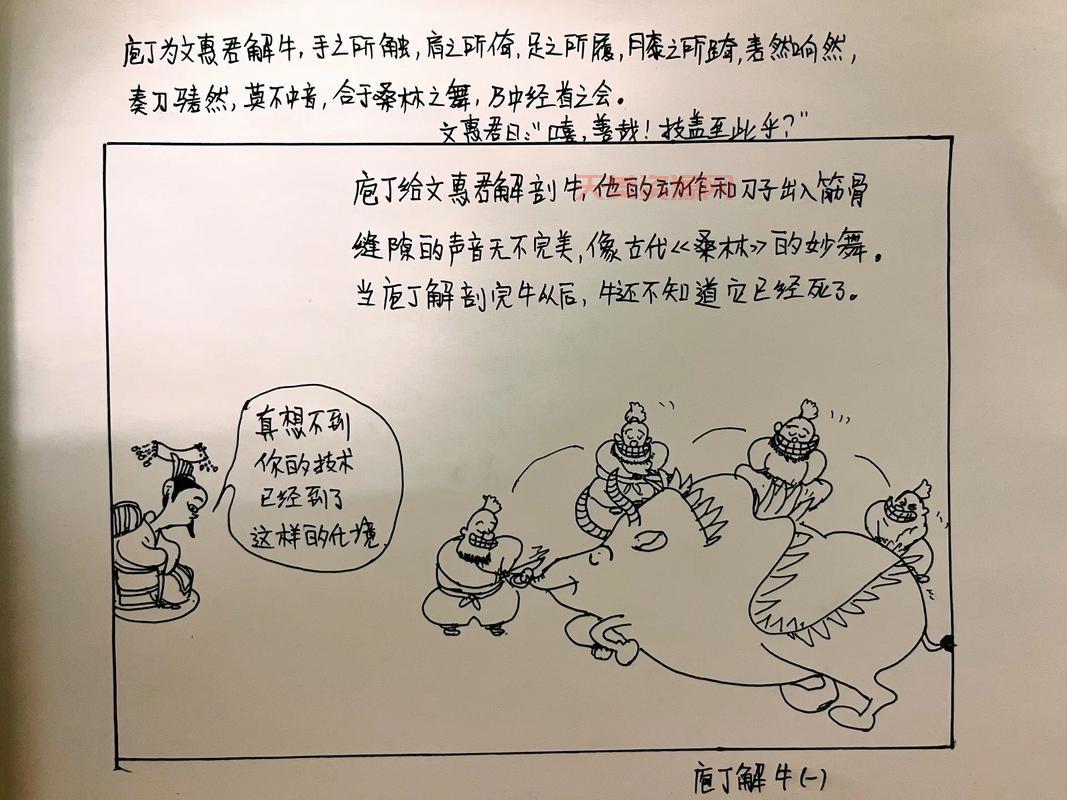 庖丁为文惠君解牛,手之所触,肩之所倚,足之所履,膝之所踦,砉然响然,
奏刀騞然,莫不中音,合于桑林之舞,乃中经首之会。
文惠君曰:“嘻,善哉!技盖至此乎?”
庖丁给文惠君解剖牛,他的动作和刀子出入筋骨
缝隙的声音无不完美,像古代《桑林》的妙舞。
当庖丁解剖完牛从后,牛还不知道它已经死了。
真想不到
你的技术
已经到了
这样的化境.
庖丁解牛(一)